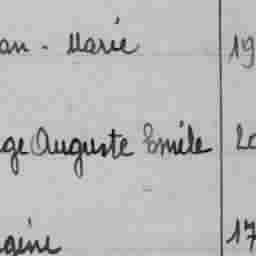 an - Marie 19
ge Auguste Emile 20
gène 17